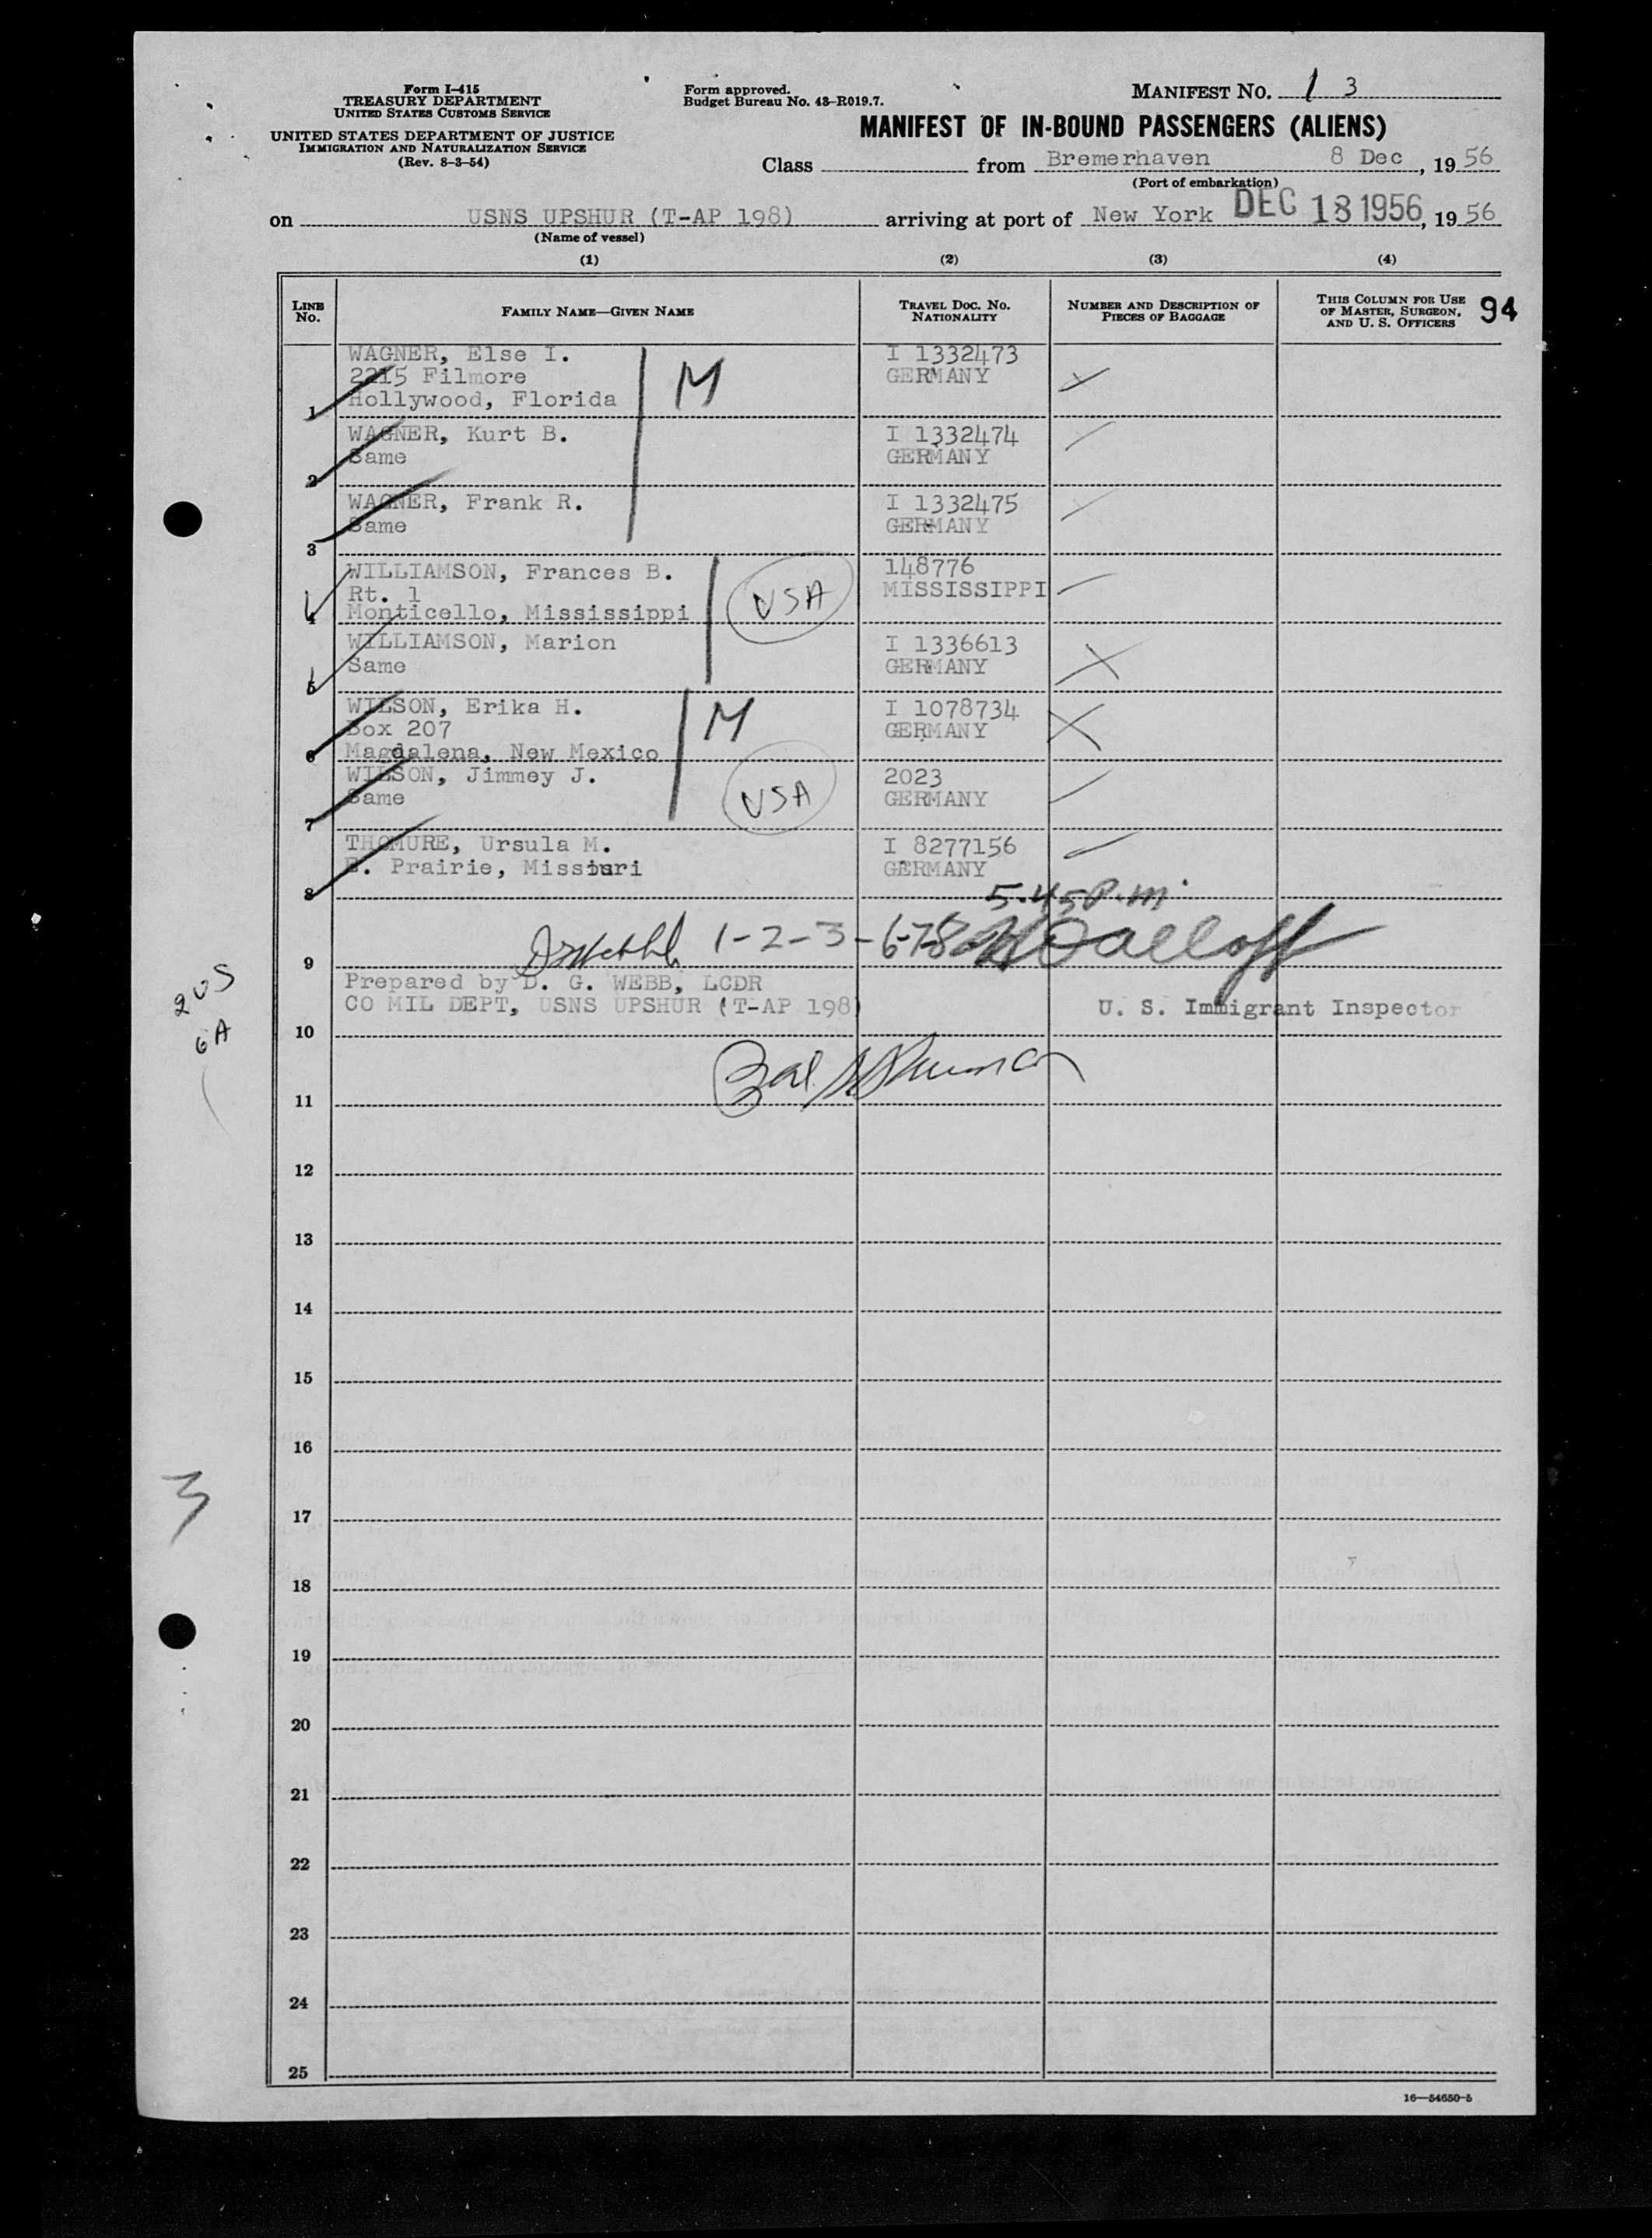 Form I-415
TREASURY DEPARTMENT
UNITED STATES CUSTOMS SERVICE
UNITED STATES DEPARTMENT OF JUSTICE
IMMIGRATION AND NATURALIZATION SERVICE
(Rev. 8-3-54)
Form approved.
Budget Bureau No. 43-R019.7.
MANIFEST NO. 1 3
MANIFEST OF IN-BOUND PASSENGERS (ALIENS)
Class from Bremerhaven 8 Dec, 1956
(Port of embarkation)
on USNS UPSHUR (T-AP 198) arriving at port of New York DEC 18 1956, 1956
(Name of vessel)
(1) (2) (3) (4)
LINE NO. FAMILY NAME—GIVEN NAME TRAVEL DOC. NO. NATIONALITY NUMBER AND DESCRIPTION OF PIECES OF BAGGAGE THIS COLUMN FOR USE OF MASTER, SURGEON, AND U. S. OFFICERS 94
WAGNER, Else I. I 1332473
2215 Filmore M GERMANY
1 Hollywood, Florida
WAGNER, Kurt B. I 1332474
Same GERMANY
2
WAGNER, Frank R. I 1332475
Same GERMANY
3
WILLIAMSON, Frances B. 148776
Rt. 1 USA MISSISSIPPI
4 Monticello, Mississippi
WILLIAMSON, Marion I 1336613
Same GERMANY
5
WILSON, Erika H. I 1078734
Box 207 M GERMANY
6 Magdalena, New Mexico
WILSON, Jimmey J. 2023
Same USA GERMANY
7
THOMURE, Ursula M. I 8277156
E. Prairie, Missouri GERMANY
8 5.45 P.m.
9 1-2-3-6-7-8
Prepared by D. G. WEBB, LCDR
CO MIL DEPT, USNS UPSHUR (T-AP 198) U. S. Immigrant Inspector
2 US
6 A
10
11
12
13
14
15
16
17
3
18
19
20
21
22
23
24
25
16—54650-5